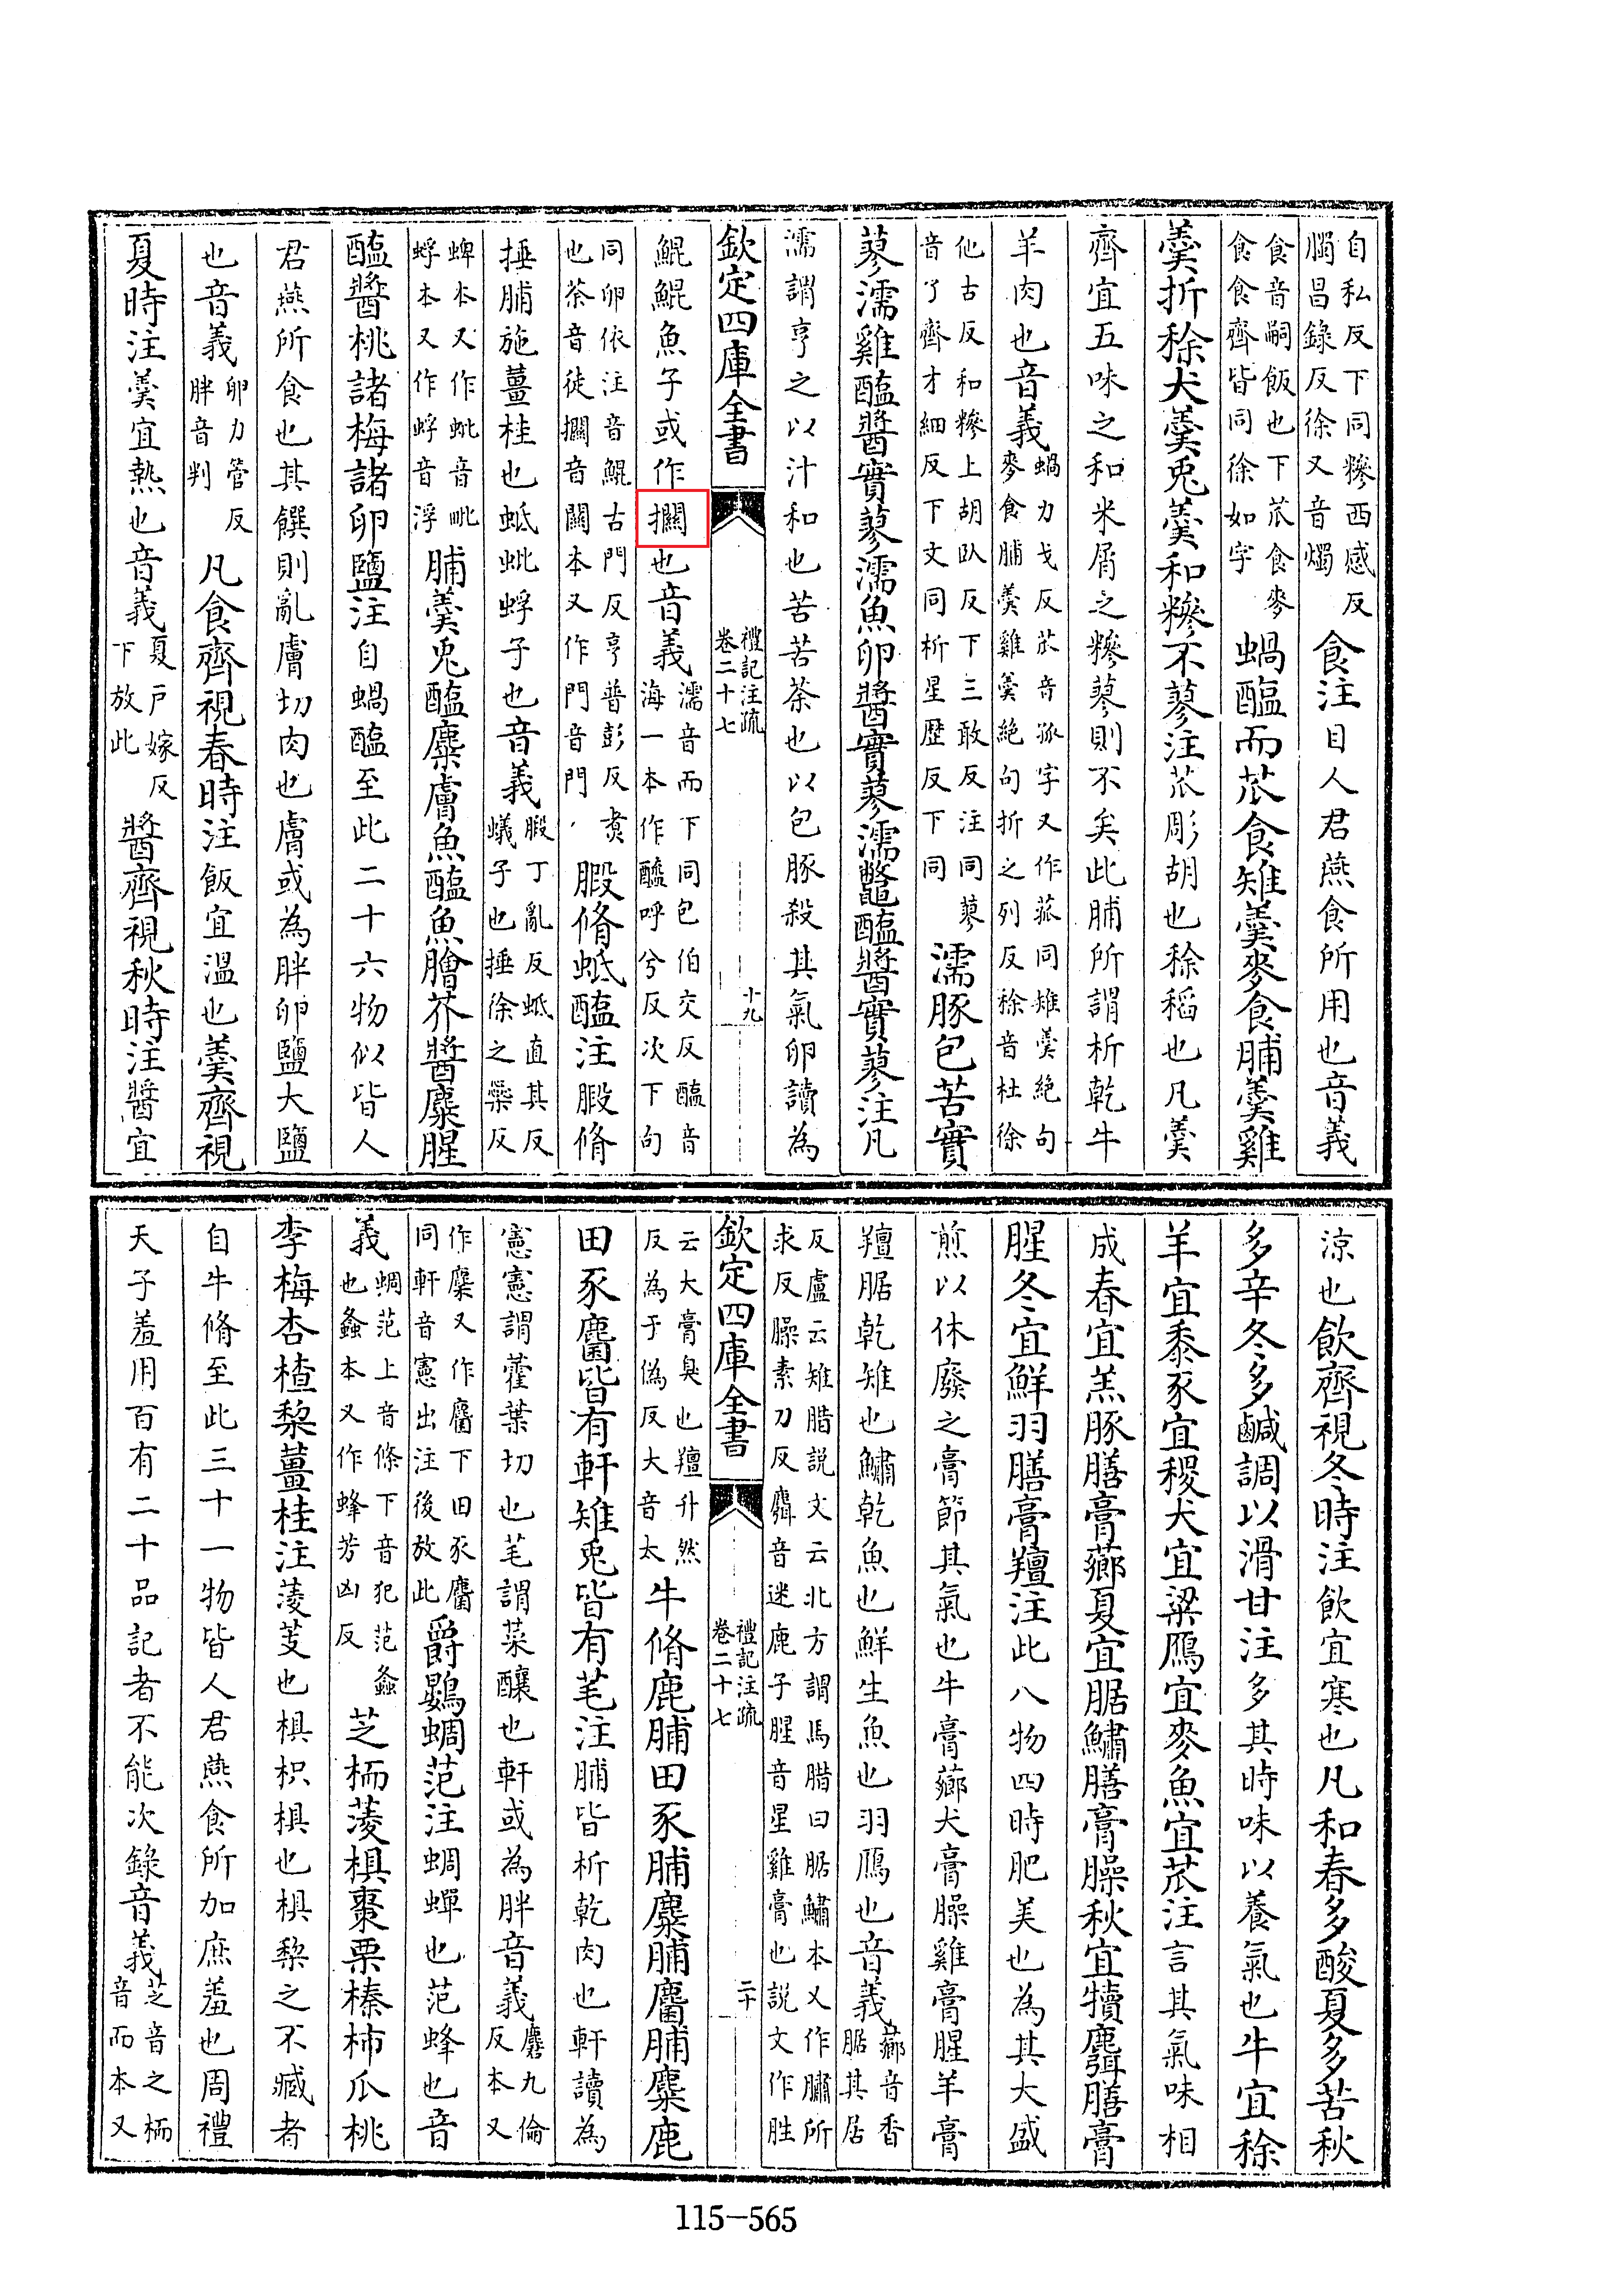 自私反下同糝西感反
臅昌錄反徐又音燭
食注目人君燕食所用也音義
食音嗣飯也下苽食麥
食食齊皆同徐如字
蝸醢而苽食雉羹麥食脯羹雞
羹折稌犬羹兎羹和糝不蓼注苽彫胡也稌稻也凡羹
齊宜五味之和米屑之糝蓼則不矣此脯所謂析乾牛
羊肉也音義
蝸力戈反苽音孤字又作菰同雉羹絶句
麥食脯羹雞羹絶句折之列反稌音杜徐
他古反和糝上胡臥反下三敢反注同蓼
音了齊才細反下文同析星歴反下同
濡豚包苦實
蓼濡雞醢醬實蓼濡魚卵醬實蓼濡鼈醢醬實蓼注凡
濡謂亨之以汁和也苦苦荼也以包豚殺其氣卵讀為
欽定四庫全書
禮記注疏
卷二十七
十九
鯤鯤魚子或作攔也音義
濡音而下同包伯交反醢音
海一本作醯呼兮反次下句
同卵依注音鯤古門反亨普彭反煑
也荼音徒攔音關本又作門音門
腶脩蚳醢注腶脩
捶脯施薑桂也蚳蚍蜉子也音義
腶丁亂反蚳直其反
蟻子也捶徐之蘂反
蜱本又作蚍音毗
蜉本又作蜉音浮
脯羹兎醢麋膚魚醢魚膾芥醬麋腥
醢醬桃諸梅諸卵鹽注自蝸醢至此二十六物似皆人
君燕所食也其饌則亂膚切肉也膚或為胖卵鹽大鹽
也音義
卵力管反
胖音判
凡食齊視春時注飯宜温也羹齊視
夏時注羹宜熱也音義
夏戸嫁反
下放此
醬齊視秋時注醬宜
涼也飲齊視冬時注飲宜寒也凡和春多酸夏多苦秋
多辛冬多鹹調以滑甘注多其時味以養氣也牛宜稌
羊宜黍豕宜稷犬宜粱鴈宜麥魚宜苽注言其氣味相
成春宜羔豚膳膏薌夏宜腒鱐膳膏臊秋宜犢麛膳膏
腥冬宜鮮羽膳膏羶注此八物四時肥美也為其大盛
煎以休廢之膏節其氣也牛膏薌犬膏臊雞膏腥羊膏
羶腒乾雉也鱐乾魚也鮮生魚也羽鴈也音義
薌音香
腒其居
反盧云雉腊説文云北方謂鳥腊曰腒鱐本又作䐹所
求反臊素刀反麛音迷鹿子腥音星雞膏也説文作胜
欽定四庫全書
禮記注疏
卷二十七
二十
云大膏臭也羶升然
反為于偽反大音太
牛脩鹿脯田豕脯麋脯麕脯麋鹿
田豕麕皆有軒雉兎皆有芼注脯皆析乾肉也軒讀為
憲憲謂藿葉切也芼謂菜釀也軒或為胖音義
麕九倫
反本又
作麇又作麏下田豕麕
同軒音憲出注後放此
爵鷃蜩范注蜩蟬也范蜂也音
義
蜩范上音條下音犯范蠭
也蠭本又作蜂芳凶反
芝栭菱椇棗栗榛柿瓜桃
李梅杏楂棃薑桂注菱芰也椇枳椇也椇棃之不臧者
自牛脩至此三十一物皆人君燕食所加庶羞也周禮
天子羞用百有二十品記者不能次錄音義
芝音之栭
音而本又
115-565